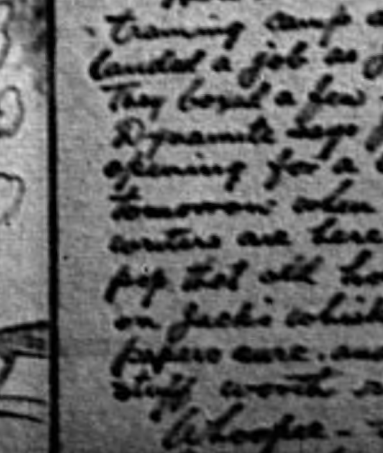 training camp a
landed a job as
They boxed a few
Dynamite says
opening for a
tomorrow when
writers are here
pep that old
on Jack's which
papers sure. and
stuff worth
Whoopee -